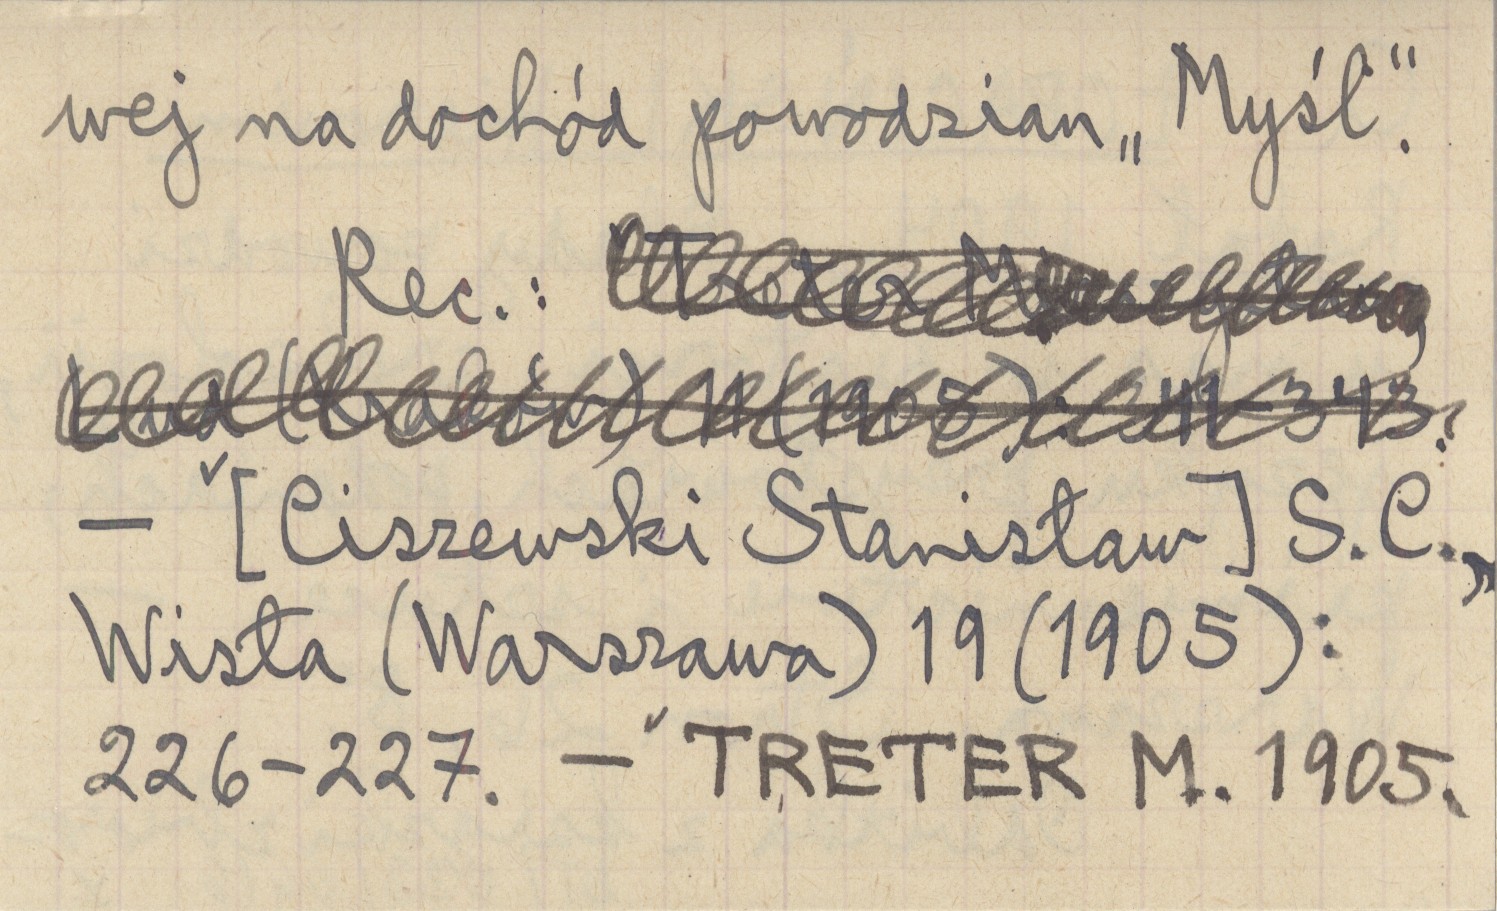 wej na dochód powodzian „Myśl".
Rec.: Treter M
Lud (Kraków) 11 (1905): 341-343.
– [Ciszewski Stanisław] S.C.,
Wisła (Warszawa) 19 (1905):
226-227. – TRETER M. 1905.